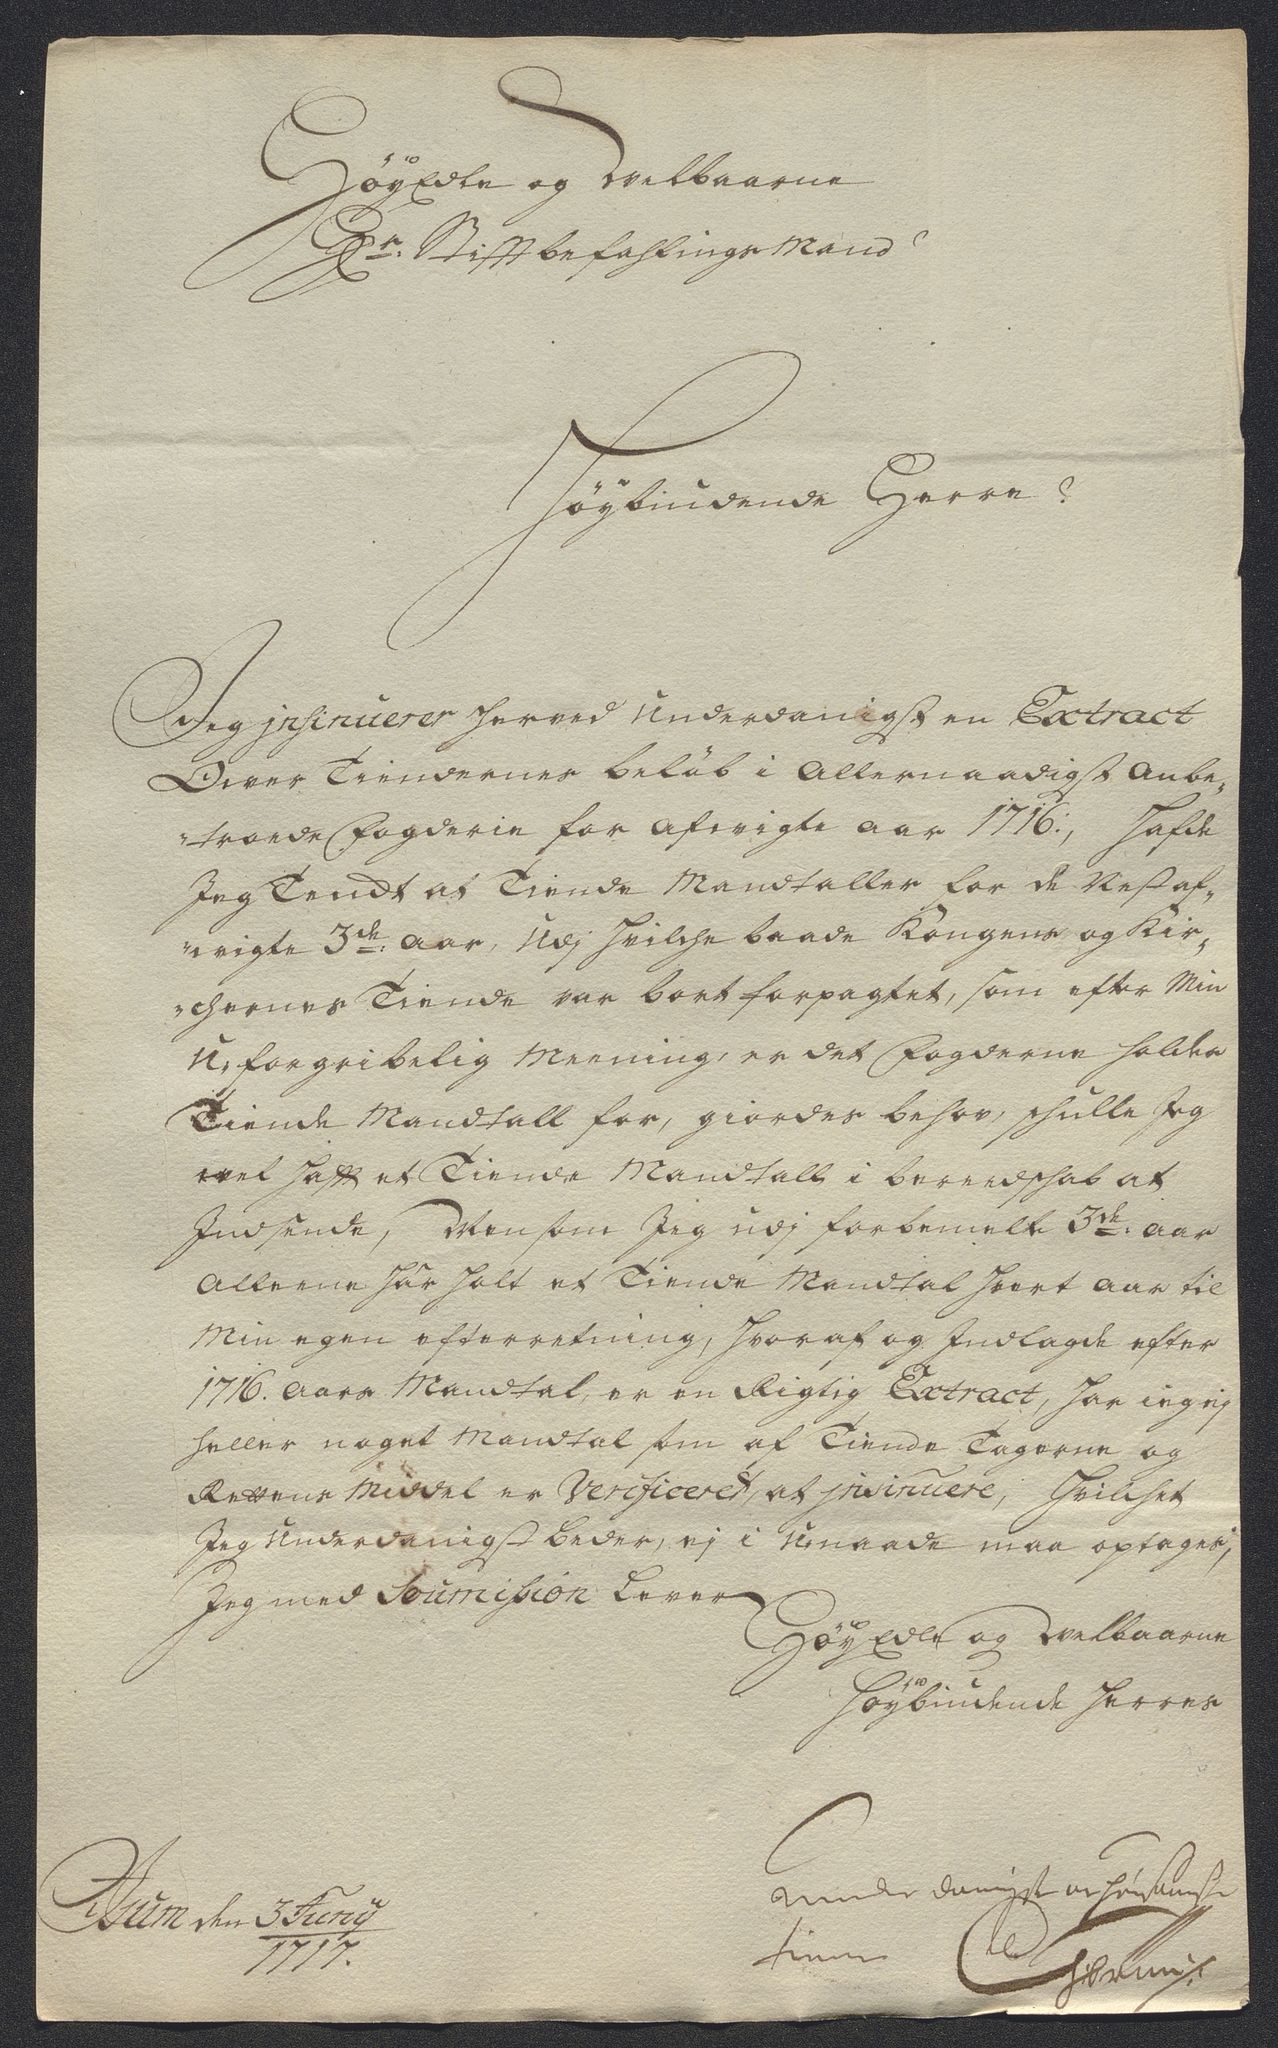 HöyEdle og Welbaarne
Hr. Stifftbefahlings Mand
Höybiudende Herre
Jeg insinuerer herved Underdanigst en Extract
Ower Tiendernes beløb i Allernaadigst Anbe-
-troede Fogderie for Afvigte aar 1716:, Hafde
Jeg Tendt at Tiende Mandtaller for de Nestaf-
-vigte 3de aar, Udj hvilche baade Kongens og Kir-
-chernes Tiende var bortforpagtet, som efter Min
U-forgribelig Meening, er det Fogderne holder
Tiende Mandtall for, giordes behov, schulle Jeg
vel hafft et Tiende Mandtall i beredschab at
Indsende, Men som Jeg udj forbemelte 3de aar
Alleene här holt et Tiende Mandtal hvert aar til
Min egen efterretning, hvoraf og Indlagde efter
1716. aars Mandtal, er en Rigtig Extract, har ieg ej
heller noget Mandtal som af Tiende Tagerne og
Rettens Middel er Verificeret, at insinuere, hvilchet
Jeg Underdanigst beder, ej i Unaade maa optages,
Jeg med Soumission Lever
HöyEdle og Welbaarne
Höybiudende Herres
Aum den 3 Juny
1717.
underdanigste og hörsamste
tiener